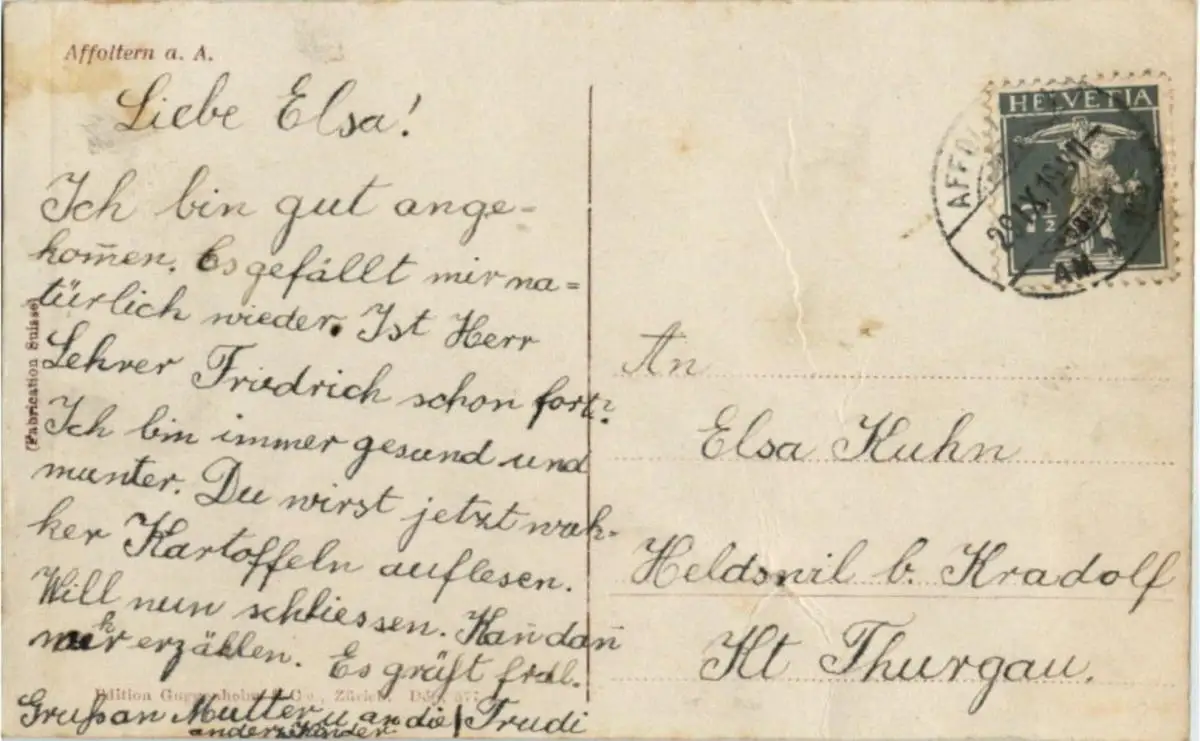 Affoltern a. A.
Liebe Elsa!
Ich bin gut ange-
kom̄en. Es gefällt mir na=
türlich wieder. Ist Herr
Lehrer Friedrich schon fort?
Ich bin immer gesund und
munter. Du wirst jetzt wak-
ker Kartoffeln auflesen.
Will nun schliessen. Kan̄ dan̄
mehr erzählen. Es grüßt frdl.
Gruß an Mutter u an die / Trudi
andern Kinder.
(Fabrication Suisse)
Edition Guggenheim & Co., Zürich.
HELVETIA
AFFOL
29.IX.
AM
An
Elsa Kuhn
Heldswil b. Kradolf
Kt Thurgau.